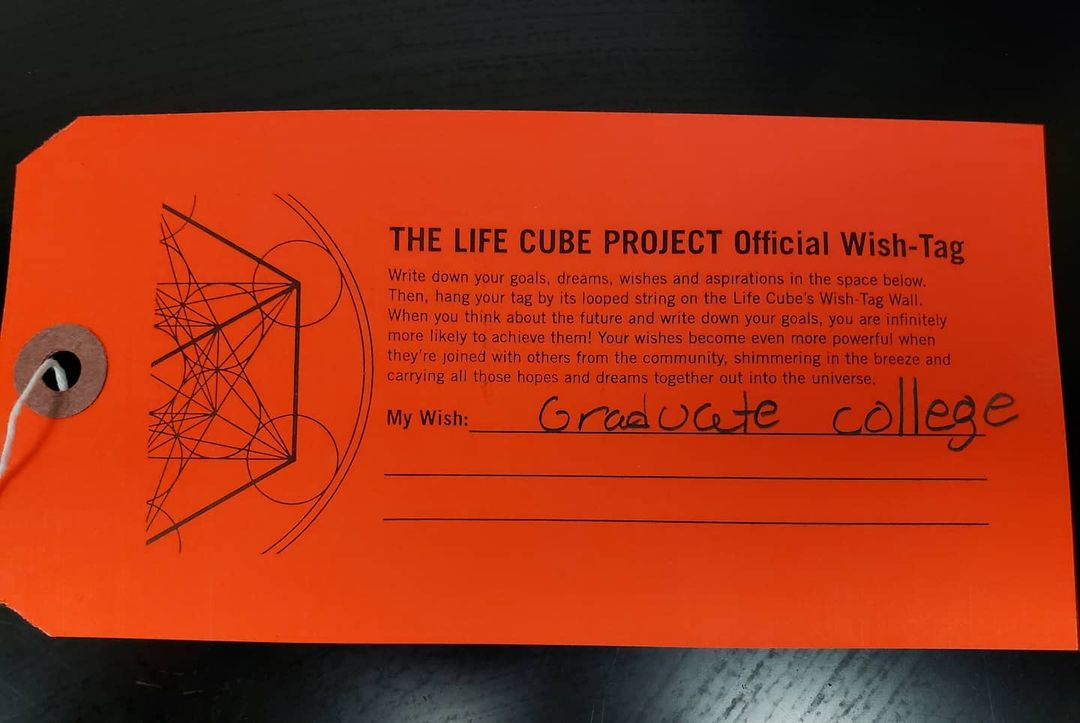 THE LIFE CUBE PROJECT Official Wish-Tag
Write down your goals, dreams, wishes and aspirations in the space below.
Then, hang your tag by its looped string on the Life Cube's Wish-Tag Wall.
When you think about the future and write down your goals, you are infinitely
more likely to achieve them! Your wishes become even more powerful when
they're joined with others from the community, shimmering in the breeze and
carrying all those hopes and dreams together out into the universe.
My Wish: Graduate college